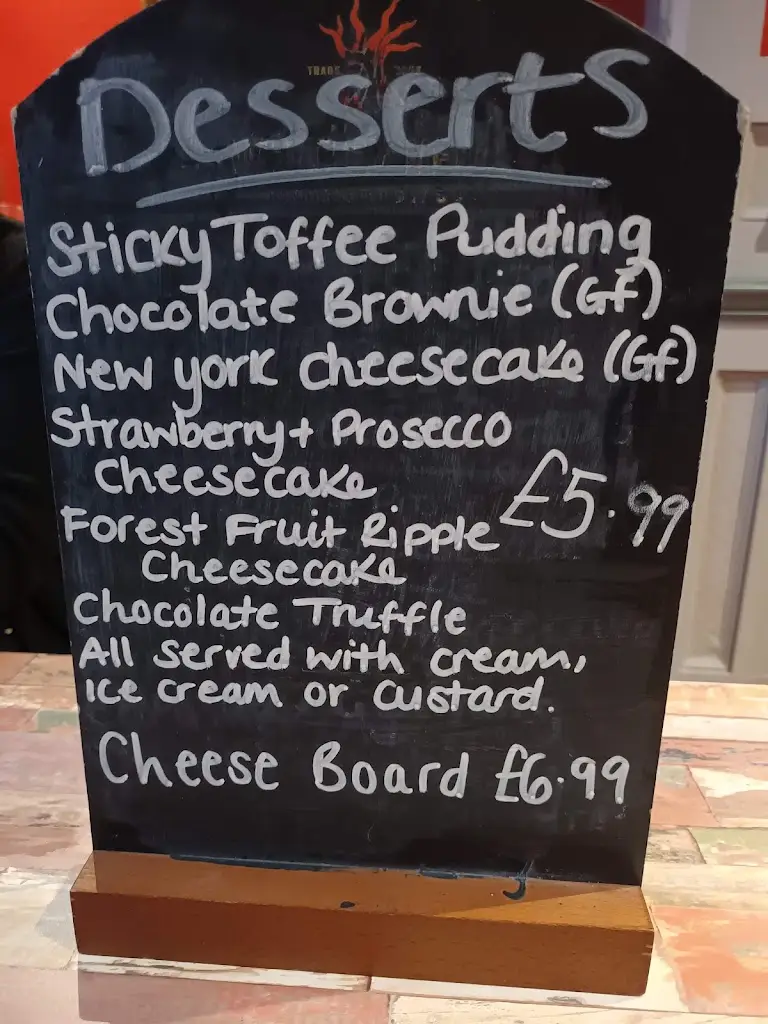 Desserts
Sticky Toffee Pudding
Chocolate Brownie (Gf)
New york cheesecake (Gf)
Strawberry + Prosecco
Cheesecake
£5.99
Forest Fruit Ripple
Cheesecake
Chocolate Truffle
All served with cream,
Ice cream or custard.
Cheese Board £6.99